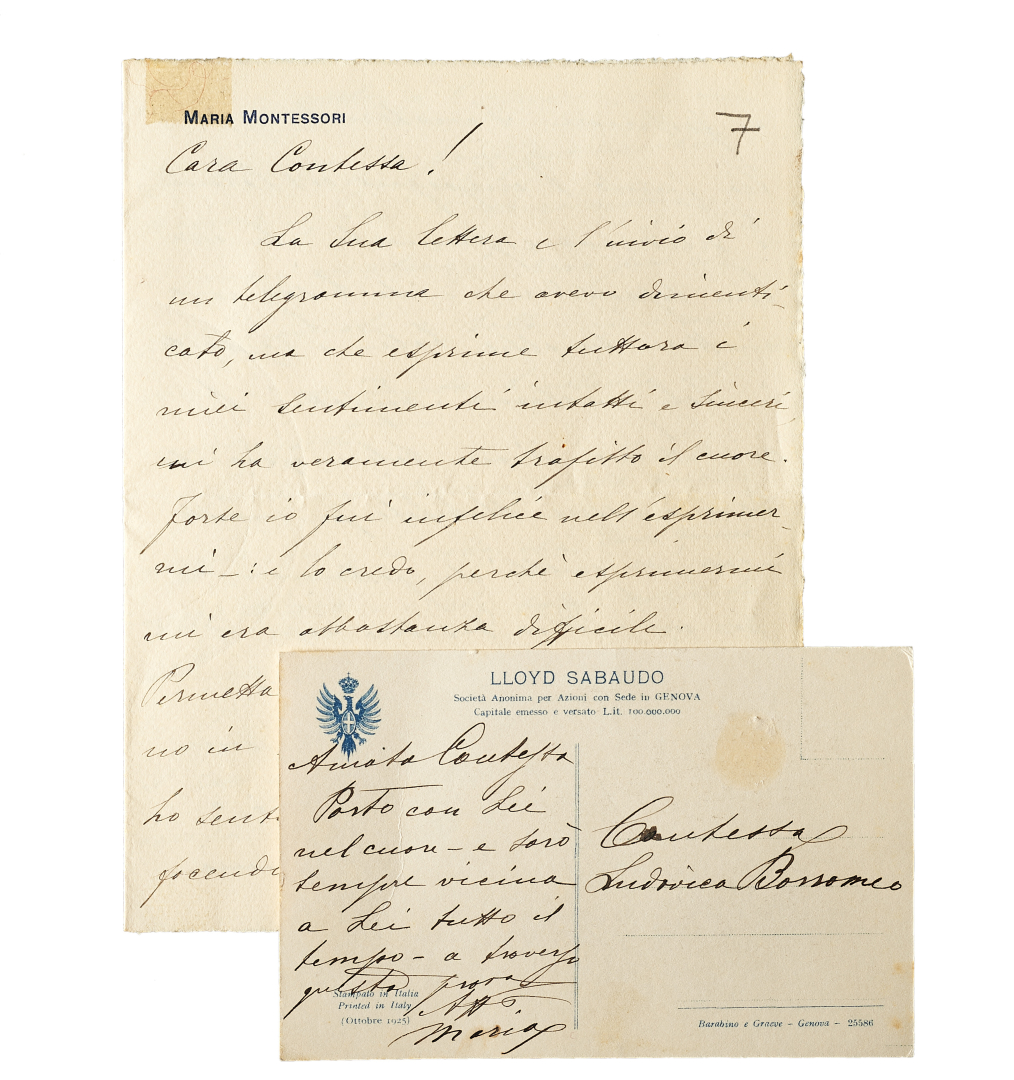 MARIA MONTESSORI
7
Cara Contessa!
La Sua lettera e l'invio di
un telegramma che avevo dimenti-
cato, ma che esprime tuttora i
miei sentimenti intatti e sinceri,
mi ha veramente trafitto il cuore.
Forse io fui infelice nell'esprimer-
mi -: e lo credo, perchè esprimermi
mi era abbastanza difficile.
Permetta
no in
ho sent
facendo
LLOYD SABAUDO
Società Anonima per Azioni con Sede in GENOVA
Capitale emesso e versato Lit. 100.000.000
Amata Contessa
Porto con Lei
nel cuore - e sarò
sempre vicina
a Lei tutto il
tempo - a traverso
questa prosa
Aff
Maria
Contessa
Ludovica Borromeo
Stampato in Italia
Printed in Italy
(Ottobre 1925)
Barabino e Graeve - Genova - 25586